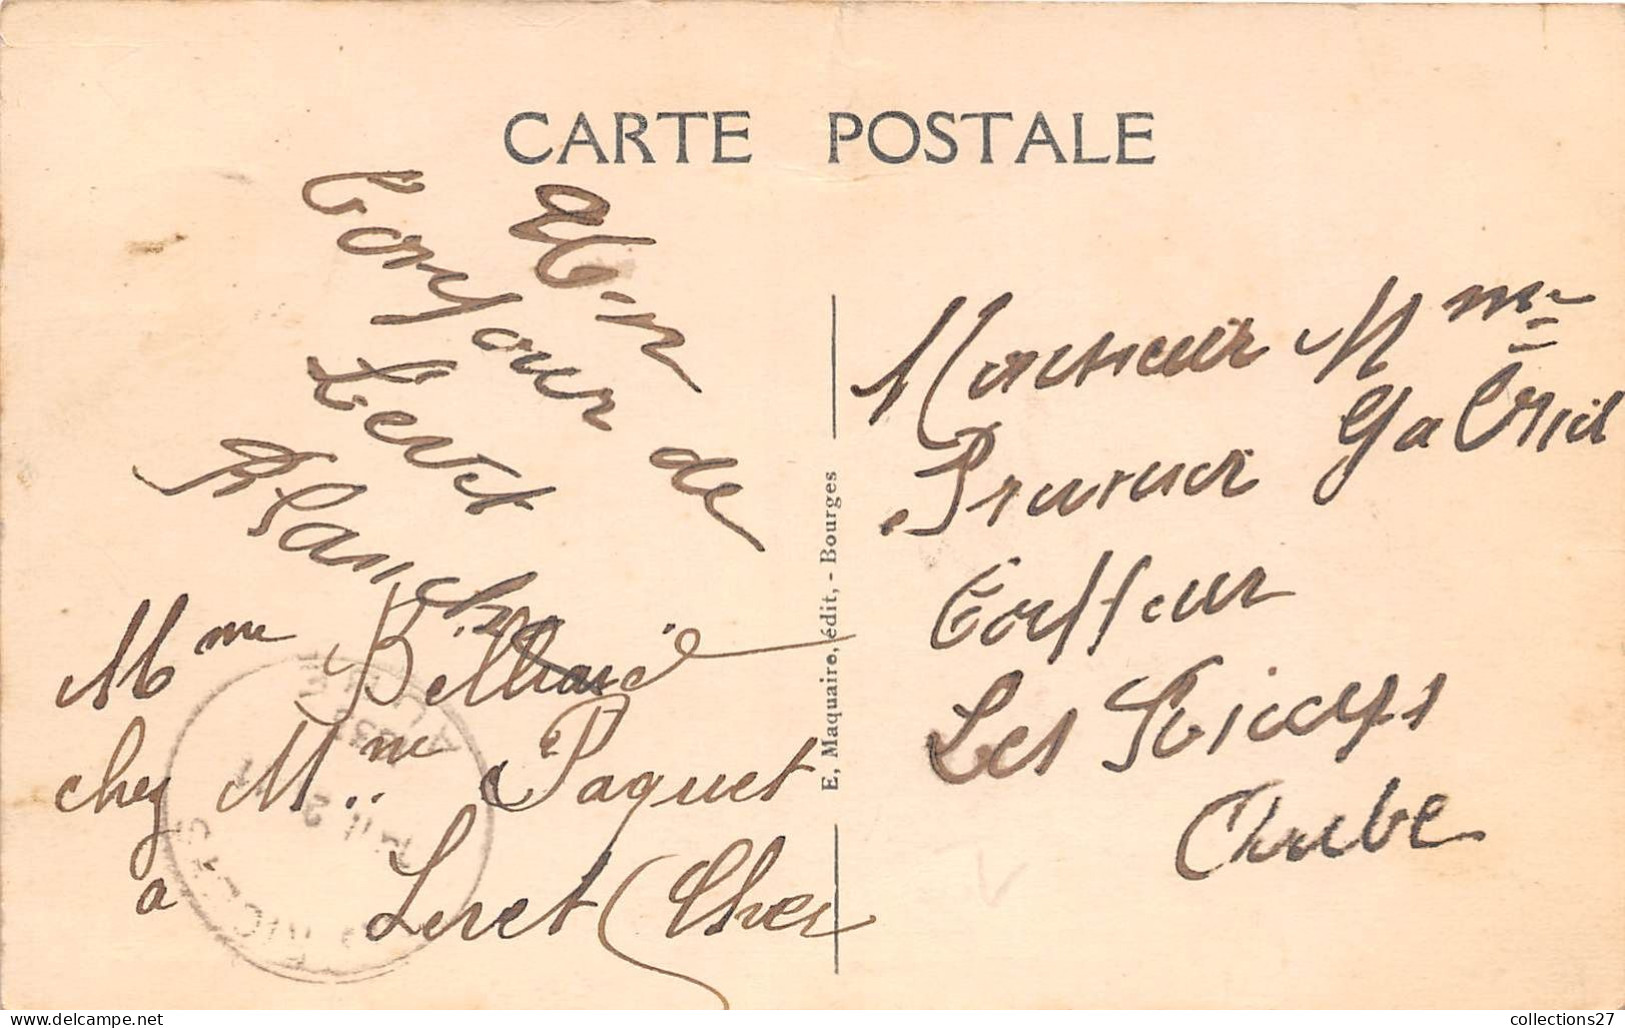 CARTE POSTALE
un
Bonjour de
Levet
Blanche
Mme Billiard
chez Mme Paquet
à Levet (Cher
E. Maquaire, édit, - Bourges
Monsieur Mme
Prunier Gabriel
Coiffeur
Les Riceys
Aube
collections27